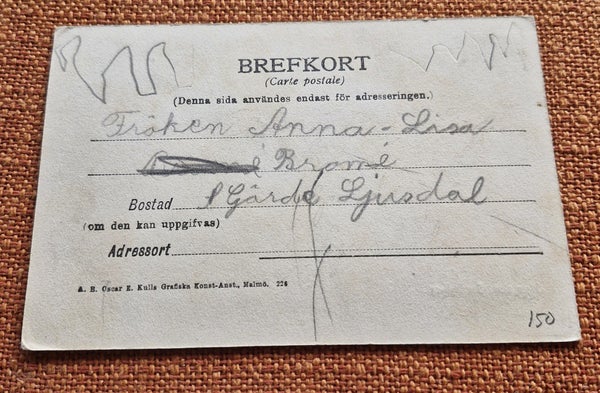 BREFKORT
(Carte postale)
(Denna sida användes endast för adresseringen.)
Fröken Anna-Lisa
Bromé
Bostad Gärde Ljusdal
(om den kan uppgifvas)
Adressort
A. B. Oscar E. Kulls Grafiska Konst-Anst., Malmö. 226
150